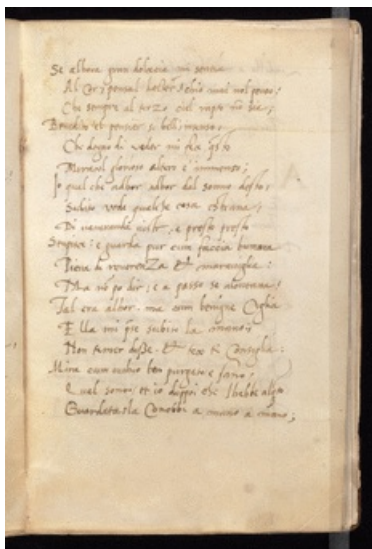 Se alhora gran dolcecia mi sentia
Al Cor; pensal lector; chio mai nol provo;
Che sempre al terzo ciel rapto
Benedeto el pensier si bello
Che degno di veder mi fea
Miracol glorioso altero e immenso;
qual che adhor adhor dal somno desto;
Subito vede qualche cosa estrana;
Di veneranda vista; e presto presto
e guarda pur cum faccia humana
Piena di reverenza & maraviglia:
Ma po dir; e a passo se alontana;
Tal era alhor. ma cum benigne Ciglia
Ella mi subito la mano;
Non temer disse. & texo ti Consiglia:
Mira cum ochio ben purgato e sano;
Qual sono; et io doppoi che lhebbe
Guardata; la Conobbi a mano a mano;